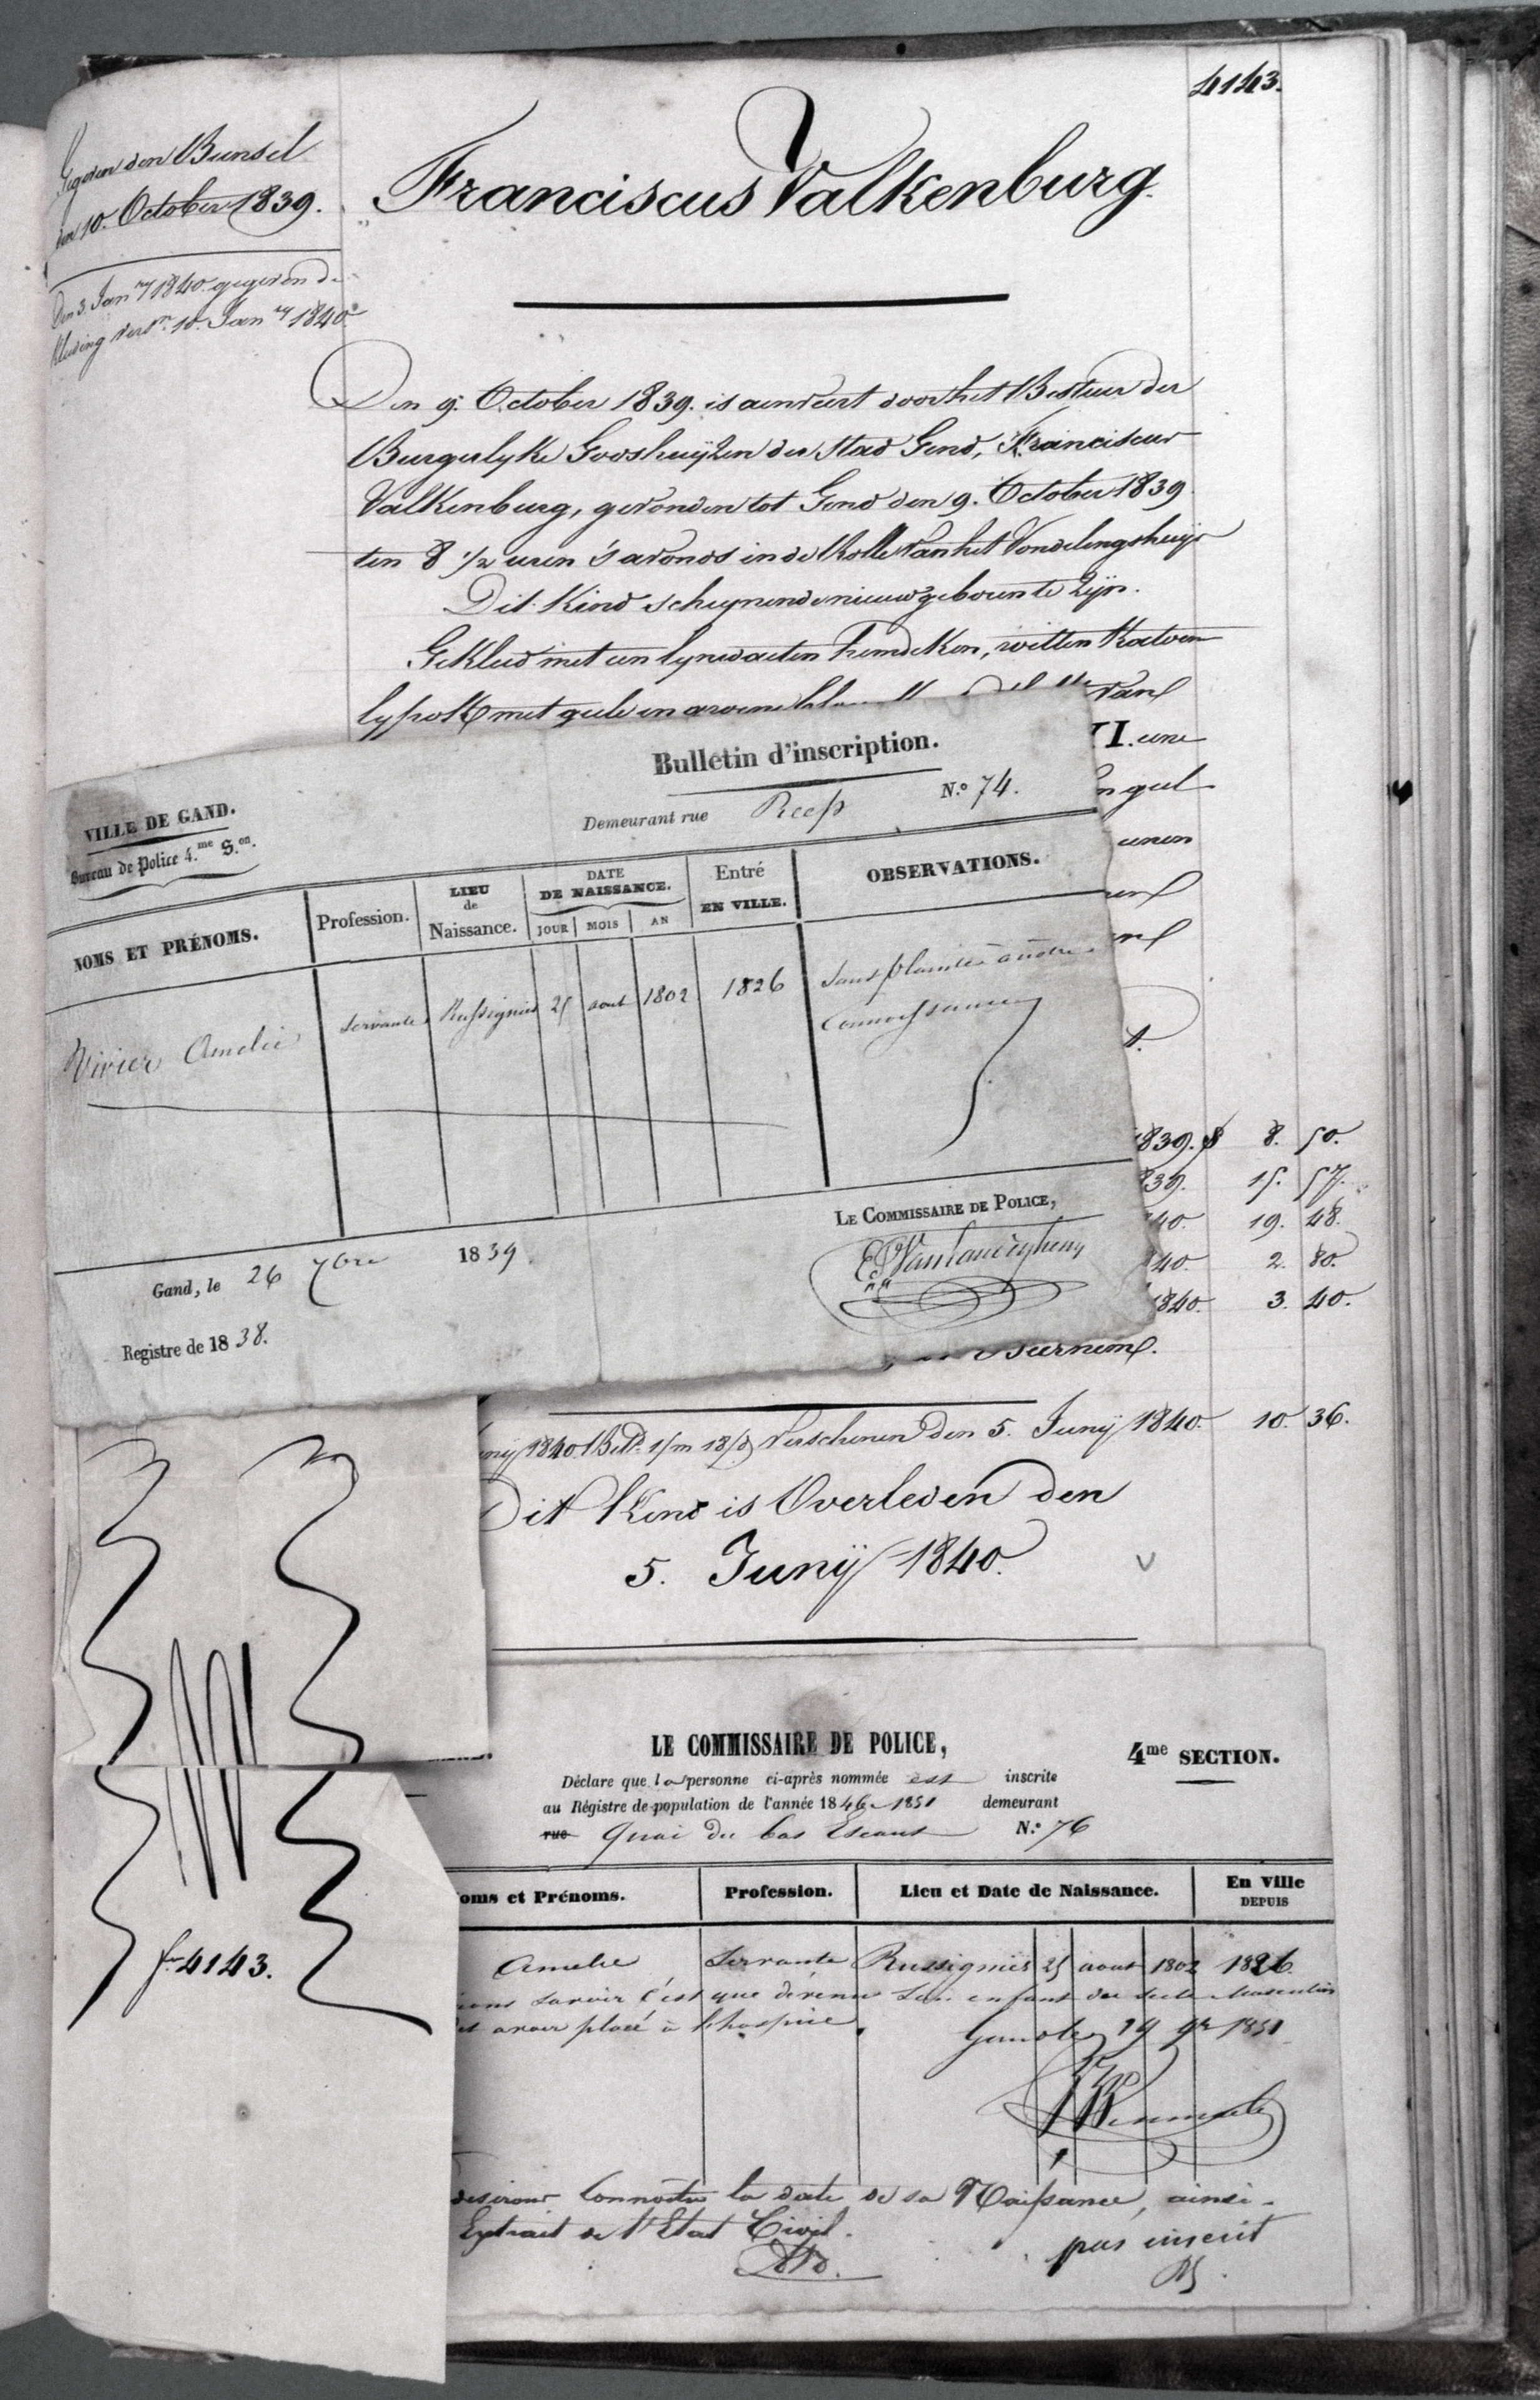 4143.
Gegeven den Bunsel
den 10. October 1839.
Den 3. Janry 1840. gegeven de
kleeding versn. 10. Janry 1840.
Franciscus Valkenburg.
Den 9. October 1839. is aenveert door het Bestuer der
Burgerlyke Godshuyzen der Stad Gend, Franciscus
Valkenburg, gevonden tot Gend den 9. October 1839
ten 8 1/2 uren 's avonds in de Rolle van het Vondelingshuys
Dit Kind schynende nieuwgeboren te zyn.
Gekleed met een lynwaeten hemdeken, witten Katoen
lyfrok met geele en
van
VI. eene
geel
eenen
1839. 8. 50.
39. 15. 57.
40. 19. 48.
40. 2. 80.
1840. 3. 40.
VILLE DE GAND.
Bureau de Police 4.me S.on.
Bulletin d'inscription.
Demeurant rue Reep N.o 74.
NOMS ET PRÉNOMS. Profession. LIEU de Naissance. DATE DE NAISSANCE. JOUR MOIS AN Entré EN VILLE. OBSERVATIONS.
Vivier Amelie Servante Russignies 25 aout 1802 1826 Sans plainte à notre
connoissance
LE COMMISSAIRE DE POLICE,
Gand, le 26 7bre 1839.
Registre de 1838.
1840 Verschenen den 5. Junij 1840. 10. 36.
Dit Kind is Overleden den
5. Junij 1840.
fo 4143.
LE COMMISSAIRE DE POLICE,
4me SECTION.
Déclare que la personne ci-après nommée est inscrite
au Régistre de population de l'année 1846-1851 demeurant
rue Quai du bas Escaut N.o 76
oms et Prénoms. Profession. Lieu et Date de Naissance. En Ville DEPUIS
Amelie Servante Russignies 25 aout 1802 1826.
savoir c'est que dévenu son enfant du sexe Masculin
avoir placé à l'hospice. Gand le 19 9br 1851
desirant connoitre la date de sa Naissance, ainsi
Extrait de l'Etat Civil.
pas inscrit